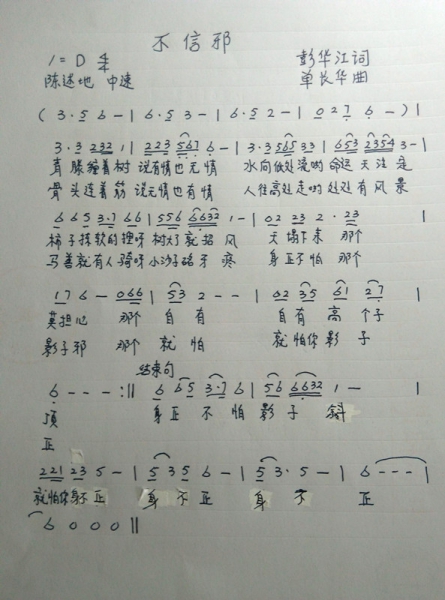 不信邪
1=D 4/4 彭华江词
陈述地 中速 单长华曲
( 3·5 6 - | 6·5 3 - | 6·5 2 - | 0 2 7 6 - ) |
3·3 232 1 | 223 567 6 - | 3·3 565 33 | 653 2354 3 - |
直 藤缠着树 说有情也无情 水向低处流哟 命运天注定
骨头连着筋 说无情也有情 人往高处走哟 处处有风景
6 65 3·7 66 | 556 6632 1 - | 02 23 2 · 23 |
柿子拣软的捏呀 树大了就招风 天塌下来 那个
马善就有人骑呀 小沙子硌牙疼 身正不怕 那个
17 6 - 066 | 53 2 - - | 02 35 61 27 |
莫担心 那个 自有 自有高个子
影子邪 那个 就怕 就怕你影子
结束句
6 - - - :|| 6 65 3·7 6 | 56 6632 1 - |
顶 身正不怕影子斜
正
221 23 5 - | 53 5 6 - | 5 3· 5 - | 6 - - - |
就怕你身不正 身不正 身不 正
6 0 0 0 ||